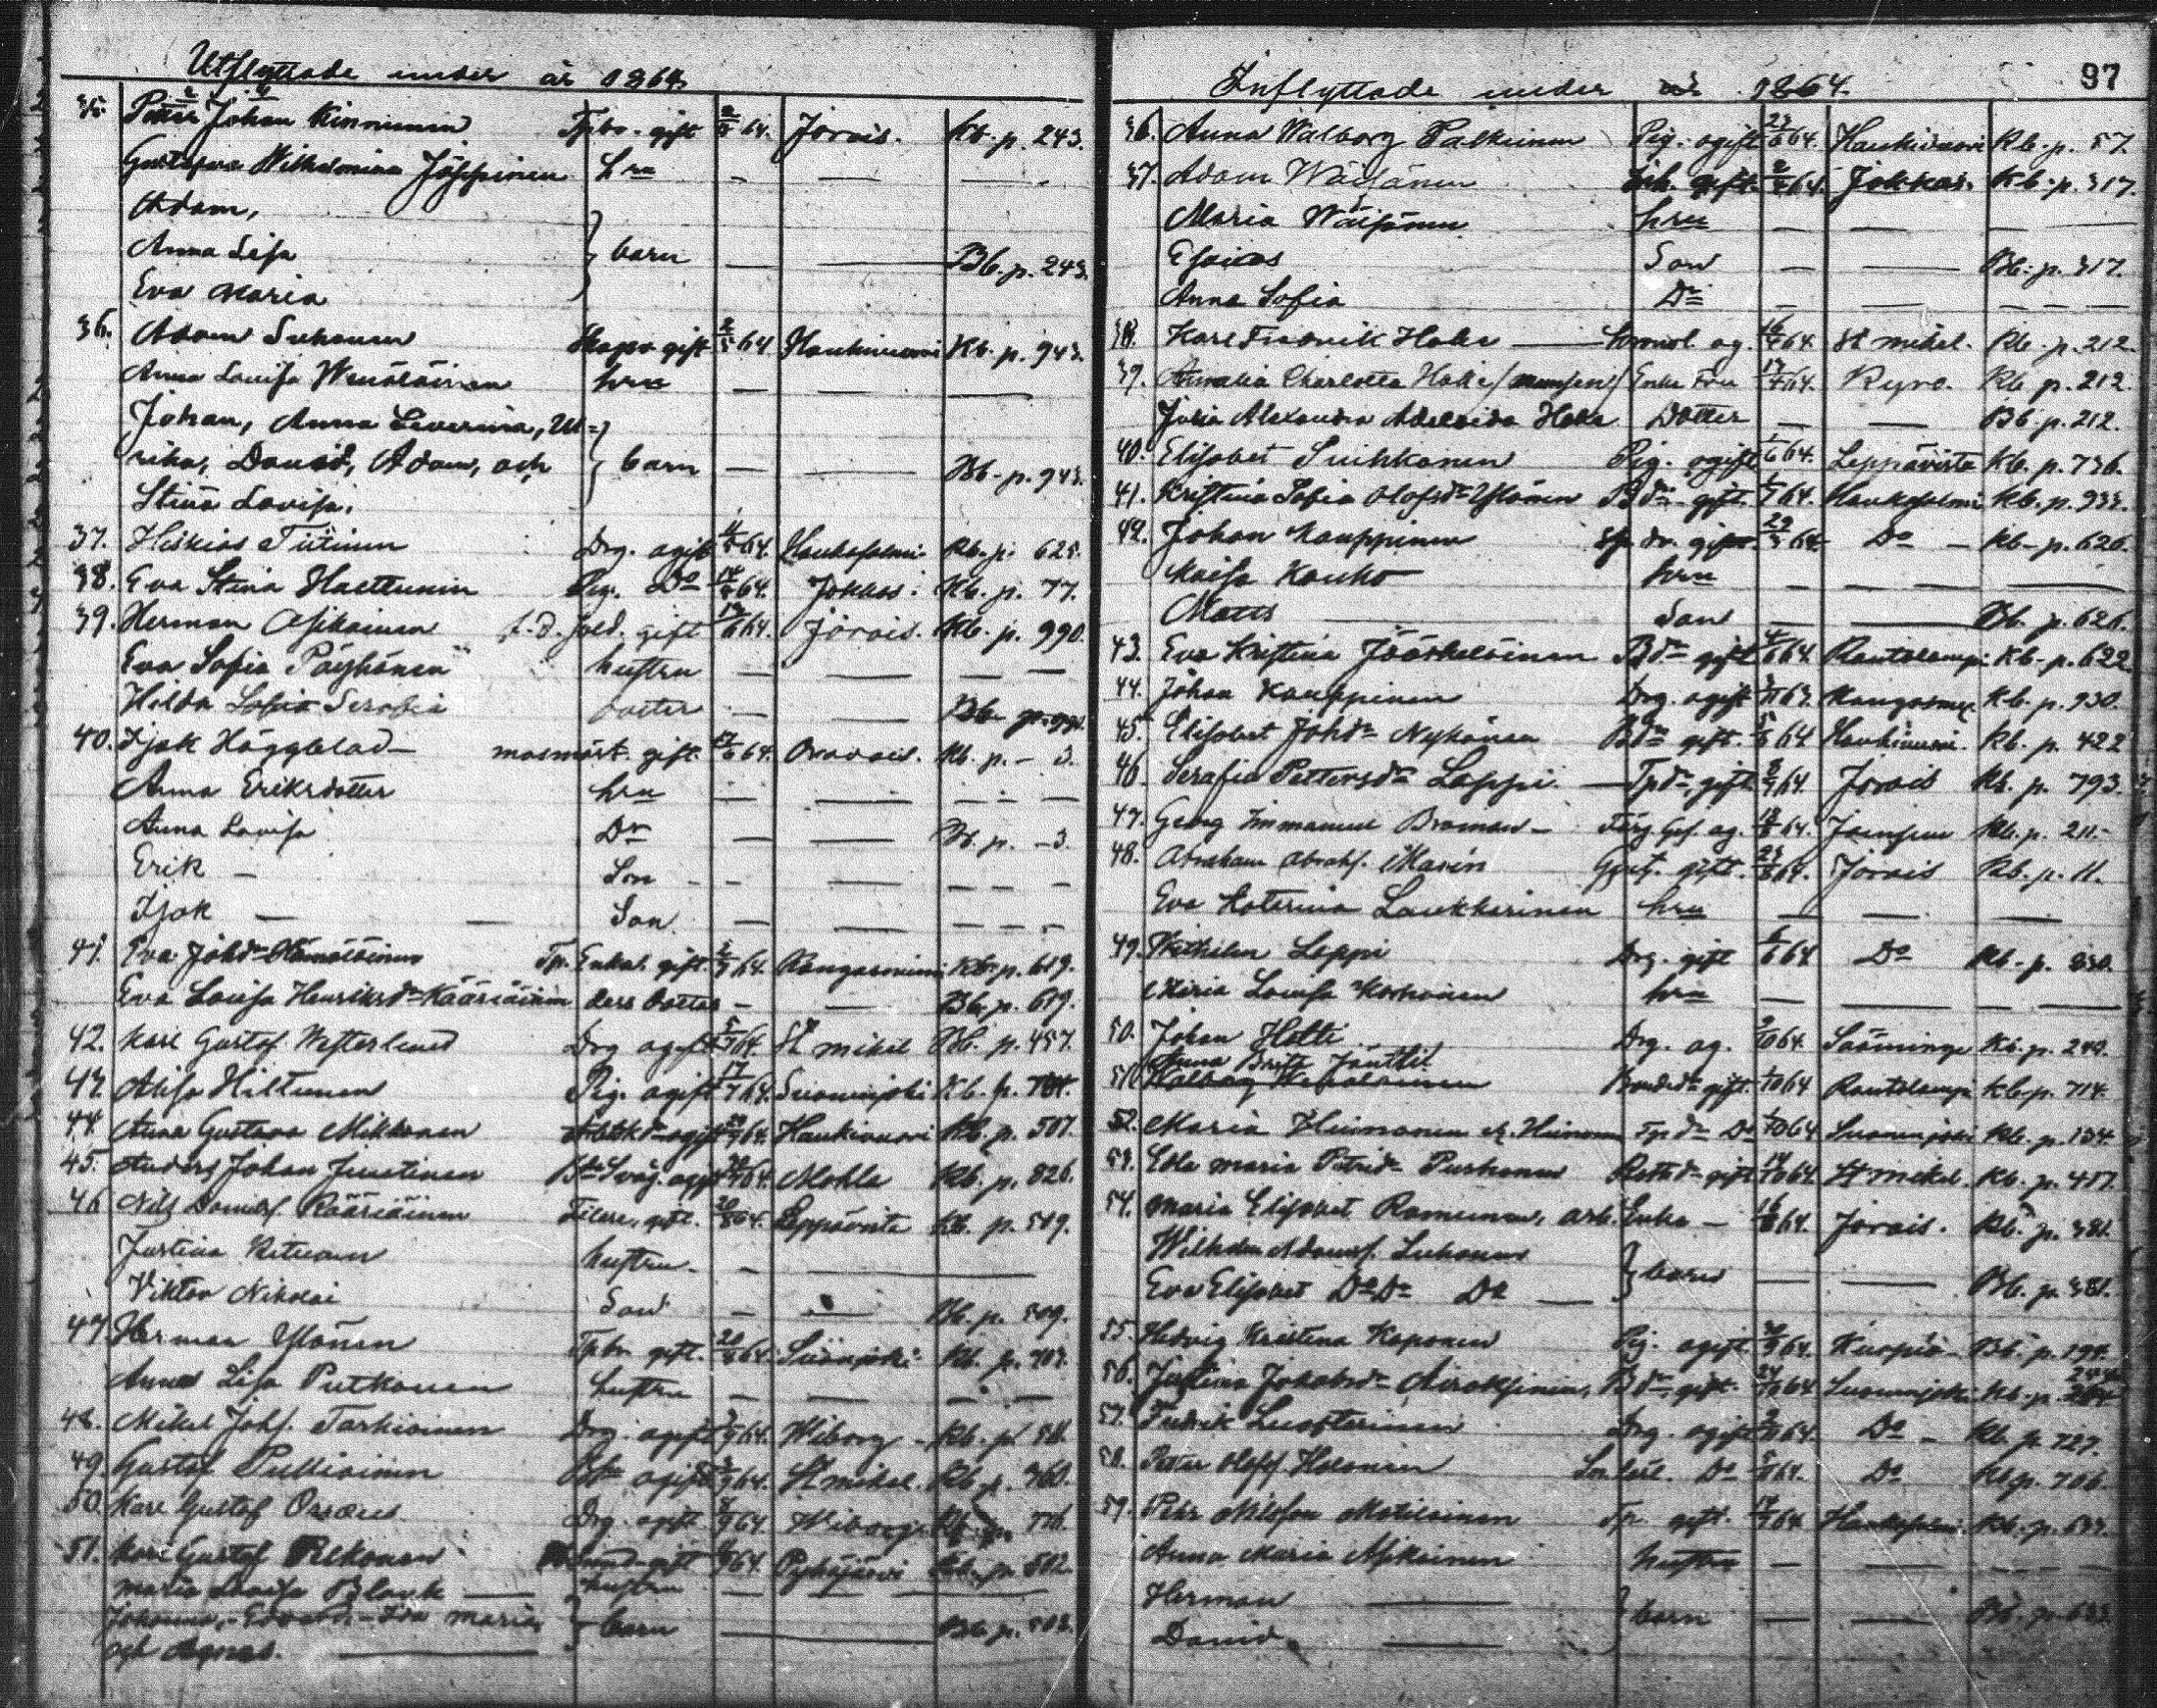 Utflyttade under år 1864.
35. Petter Johan Kinnunen Tpbr. gift 64. Jorois. Kb. p. 243.
Gustafva Wilhelmina Jäppinen hru — — —
Adam,
Anna Lisa } barn — — Bb. p. 243.
Eva Maria
36. Adam Suhonen gift 64 Haukivuori Kb. p. 943.
Anna Lovisa Wenäläinen hru — — —
Johan, Anna Severina, Ul=
rika, David, Adam, och } barn — — Bb. p. 943.
Stina Lovisa.
37. Hiskias Tiitinen Drg. ogift 64. Haukasalmi Kb. p. 625.
38. Eva Stina Haettunen Pig. Do 14/5 64. Jokkas. Kb. p. 77.
39. Herman Asikainen f.d. sold. gift 64. Jorois. Kb. p. 990.
Eva Sofia Pöyhönen hustru — — — —
Hilda Sofia Serafia dotter — — Bb. p. 990.
40. Isak Häggblad — masmäst. gift. 64. Oravais. Kb. p. — 3.
Anna Eriksdotter hru — — — — —
Anna Lovisa Dr — — Bb. p. — 3.
Erik — Son — — — — —
Isak — — Son — — — — —
41. Eva Johdr Hämäläinen Tp. Enka gift. 64. Kangasniemi Kb. p. 619.
Eva Lovisa Henriksdr Kääriäinen ders dotter — — Bb. p. 619.
42. Karl Gustaf Westerlund Drg ogift 64. St Mikel Bb. p. 457.
43. Alisa Hiltunen Pig. ogift 17/7 64. Suonenjoki Kb. p. 704.
44. Anna Gustava Mikkonen ogift 64. Haukivuori Kb. p. 507.
45. Anders Johan Juutinen ogift 64. Mohla Kb. p. 826.
46 Nils Danielss. Kääriäinen gift. 64. Leppävirta Kb. p. 509.
Justina hustru — — —
Viktor Nikolai Son — — Bb. p. 509.
47. Herman Ylönen Tpbr gift. 64. Suonenjoki Kb. p. 703.
Anna Lisa Putkonen hustru — — — —
48. Mikel Johss. Tarkiainen Drg. ogift 64. Wiborg — Kb. p.
49. Gustaf Pulliainen ogift 64. St Mikel. Kb. p. 360.
50. Karl Gustaf Drg. ogift. 64. Wiborg. Kb. p. 776.
51. Karl Gustaf Pekonen gift 64. Pyhäjärvi Kb. p. 502.
Maria Lovisa Blank — hustru — — —
Johanna, — Edvard, — Ida Maria, } barn — — Bb. p. 502.
och Agnes. —
Inflyttade under år 1864. 97
36. Anna Walborg Palkinen Pig. ogift 64. Haukivuori Kb. p. 57.
37. Adam Wäisänen gift. 64. Jokkas. Kb. p. 317.
Maria Wäisänen hru — — — —
Esaias Son — — Bb. p. 317.
Anna Sofia Dr — — — — —
38. Karl Fredrik Hake — og. 16/ 64. St Mikel. Kb. p. 212.
39. Amalia Charlotta Hake Enke Fru 64. Kyro. Kb. p. 212.
Julia Alexandra Adelaida Hake Dotter — — Bb. p. 212.
40. Elisabet Suihkonen Pig. ogift 64. Leppävirta Kb. p. 736.
41. Kristina Sofia Olofsdr Ylönen Bdr gift. 64. Haukasalmi Kb. p. 933.
42. Johan Kauppinen gift. 64 Do — Kb. p. 626.
Maisa Kauko hru — — — —
Matts Son — — Bb. p. 626.
43. Eva Kristina Jääskeläinen Bdr gift 64. Rautalampi Kb. p. 622
44. Johan Kauppinen Drg. ogift 63. Kangasniemi Kb. p. 930.
45. Elisabet Johdr Nykänen Bdr gift. 64 Haukivuori. Kb. p. 422
46. Serafia Pettersdr Leppi. — Tpdr gift. 64. Jorois Kb. p. 793.
47. Georg Immanuel Broman — og. 64. Kb. p. 211.
48. Abraham Abrahs. Marin gift. 64. Jorois Kb. p. 11.
Eva Katerina Laukkarinen hru — — —
49. Wilhelm Leppi Drg. gift 64 Do Kb. p. 830.
Maria Lovisa Korhonen hru — — — —
50. Johan Holti Drg. og. 9/10 64. Sääminge Kb. p. 240.
Anna Britta Jäntti
51. gift. 10 64 Rautalampi Kb. p. 714.
52. Maria Heimonen Tpdr Do 10 64 Suonenjoki Kb. p. 134.
53. Edla Maria Petridr Purhonen gift 10 64. St Mikel. Kb. p. 457.
54. Maria Elisabet Romunen, arb. Enka — 64. Jorois. Kb. p. 381.
Wilhelm Adamss. Suhonen
Eva Elisabet Do Dr Do — } barn — — Bb. p. 381.
55. Hedvig Kristina Koponen Pig. ogift. 64. Kuopio — Bb. p. 194.
56. Justina Jakobsdr Airaksinen, Bdr gift. 24/10 64 Suonenjoki Kb. p.
57. Fredrik Luostarinen Drg. ogift 64. Do — Kb. p. 727.
58. Petter Olofss. Halonen Do 64. Do. Kb. p. 706.
59. Pehr Nilsson Matilainen Tp. gift. 64 Haukasalmi. Kb. p. 633.
Anna Maria Asikainen hustru — — — —
Herman —
David. — } barn — — Bb. p. 633.